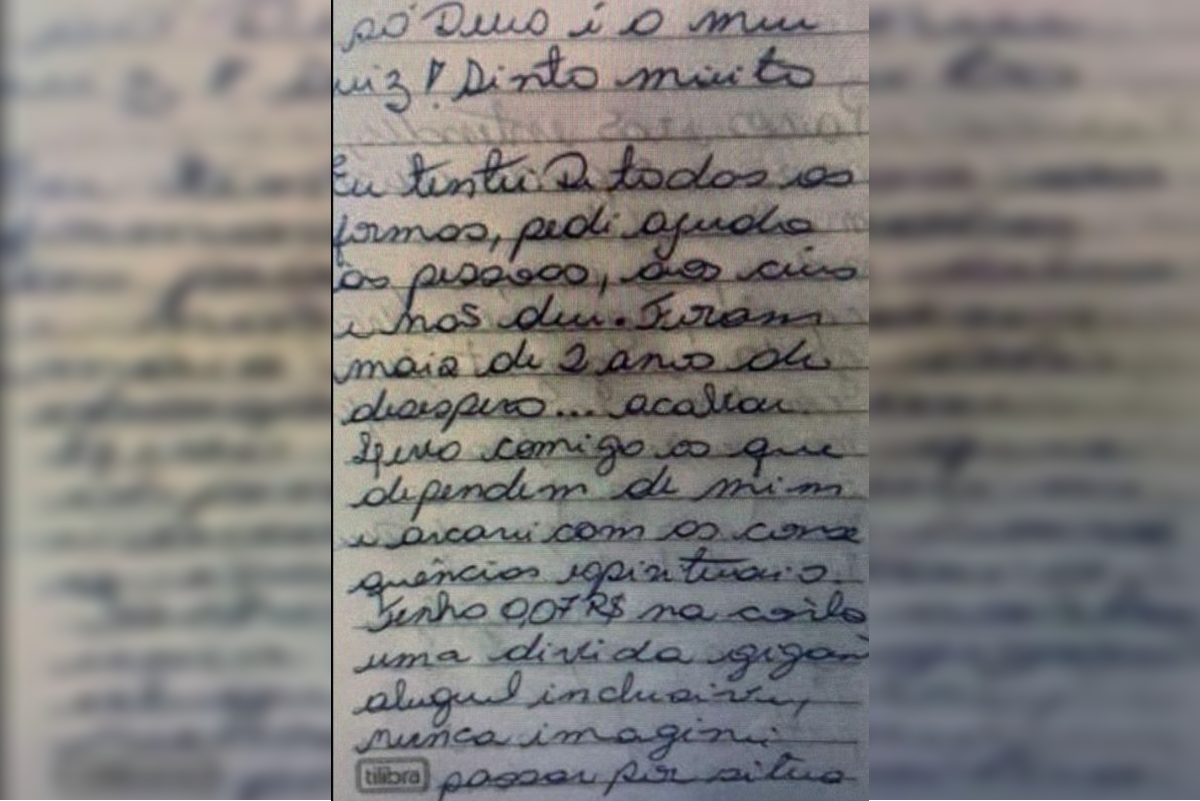 só Deus é o meu
uiz! Sinto muito
Eu tentei D todas as
formas, pedi ajuda
as pessoas, aos céus
e nos deu. Foram
mais de 2 anos de
desespero... acabou
levo comigo os que
dependem de mim
e arcarei com as conse
quências espirituais.
Tenho 0,07 R$ na conta
uma divida gigan
aluguel inclusive,
nunca imaginei
passar por situa
tilibra